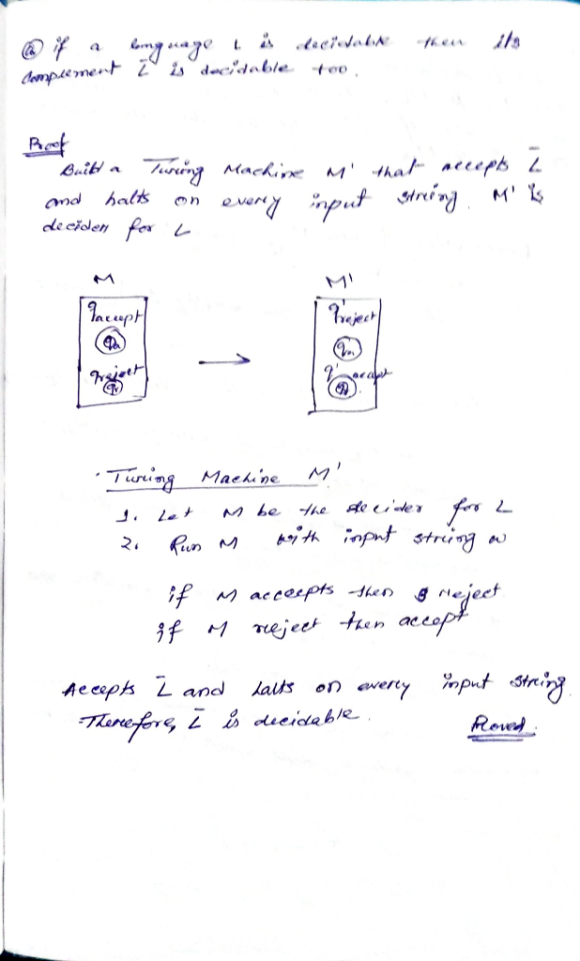 ⓐ if a language L is decidable then its
complement L̄ is decidable too.
Proof
Build a Turing Machine M' that accepts L̄
and halts on every input string. M' is
decider for L
M
M'
qaccept
q'reject
qa
qreject
q'accept
→
· Turing Machine M'
1. Let M be the decider for L
2. Run M with input string w
if M accepts then reject
if M reject then accept
Accepts L̄ and halts on every input string
Therefore, L̄ is decidable.
Proved.